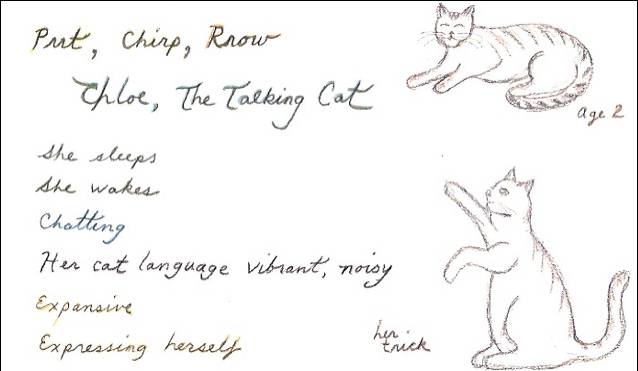 Prrt, Chirp, Rrow
Chloe, The Talking Cat
Age 2
She sleeps
She wakes
Chatting
Her cat language vibrant, noisy
Expansive
Expressing herself
her trick